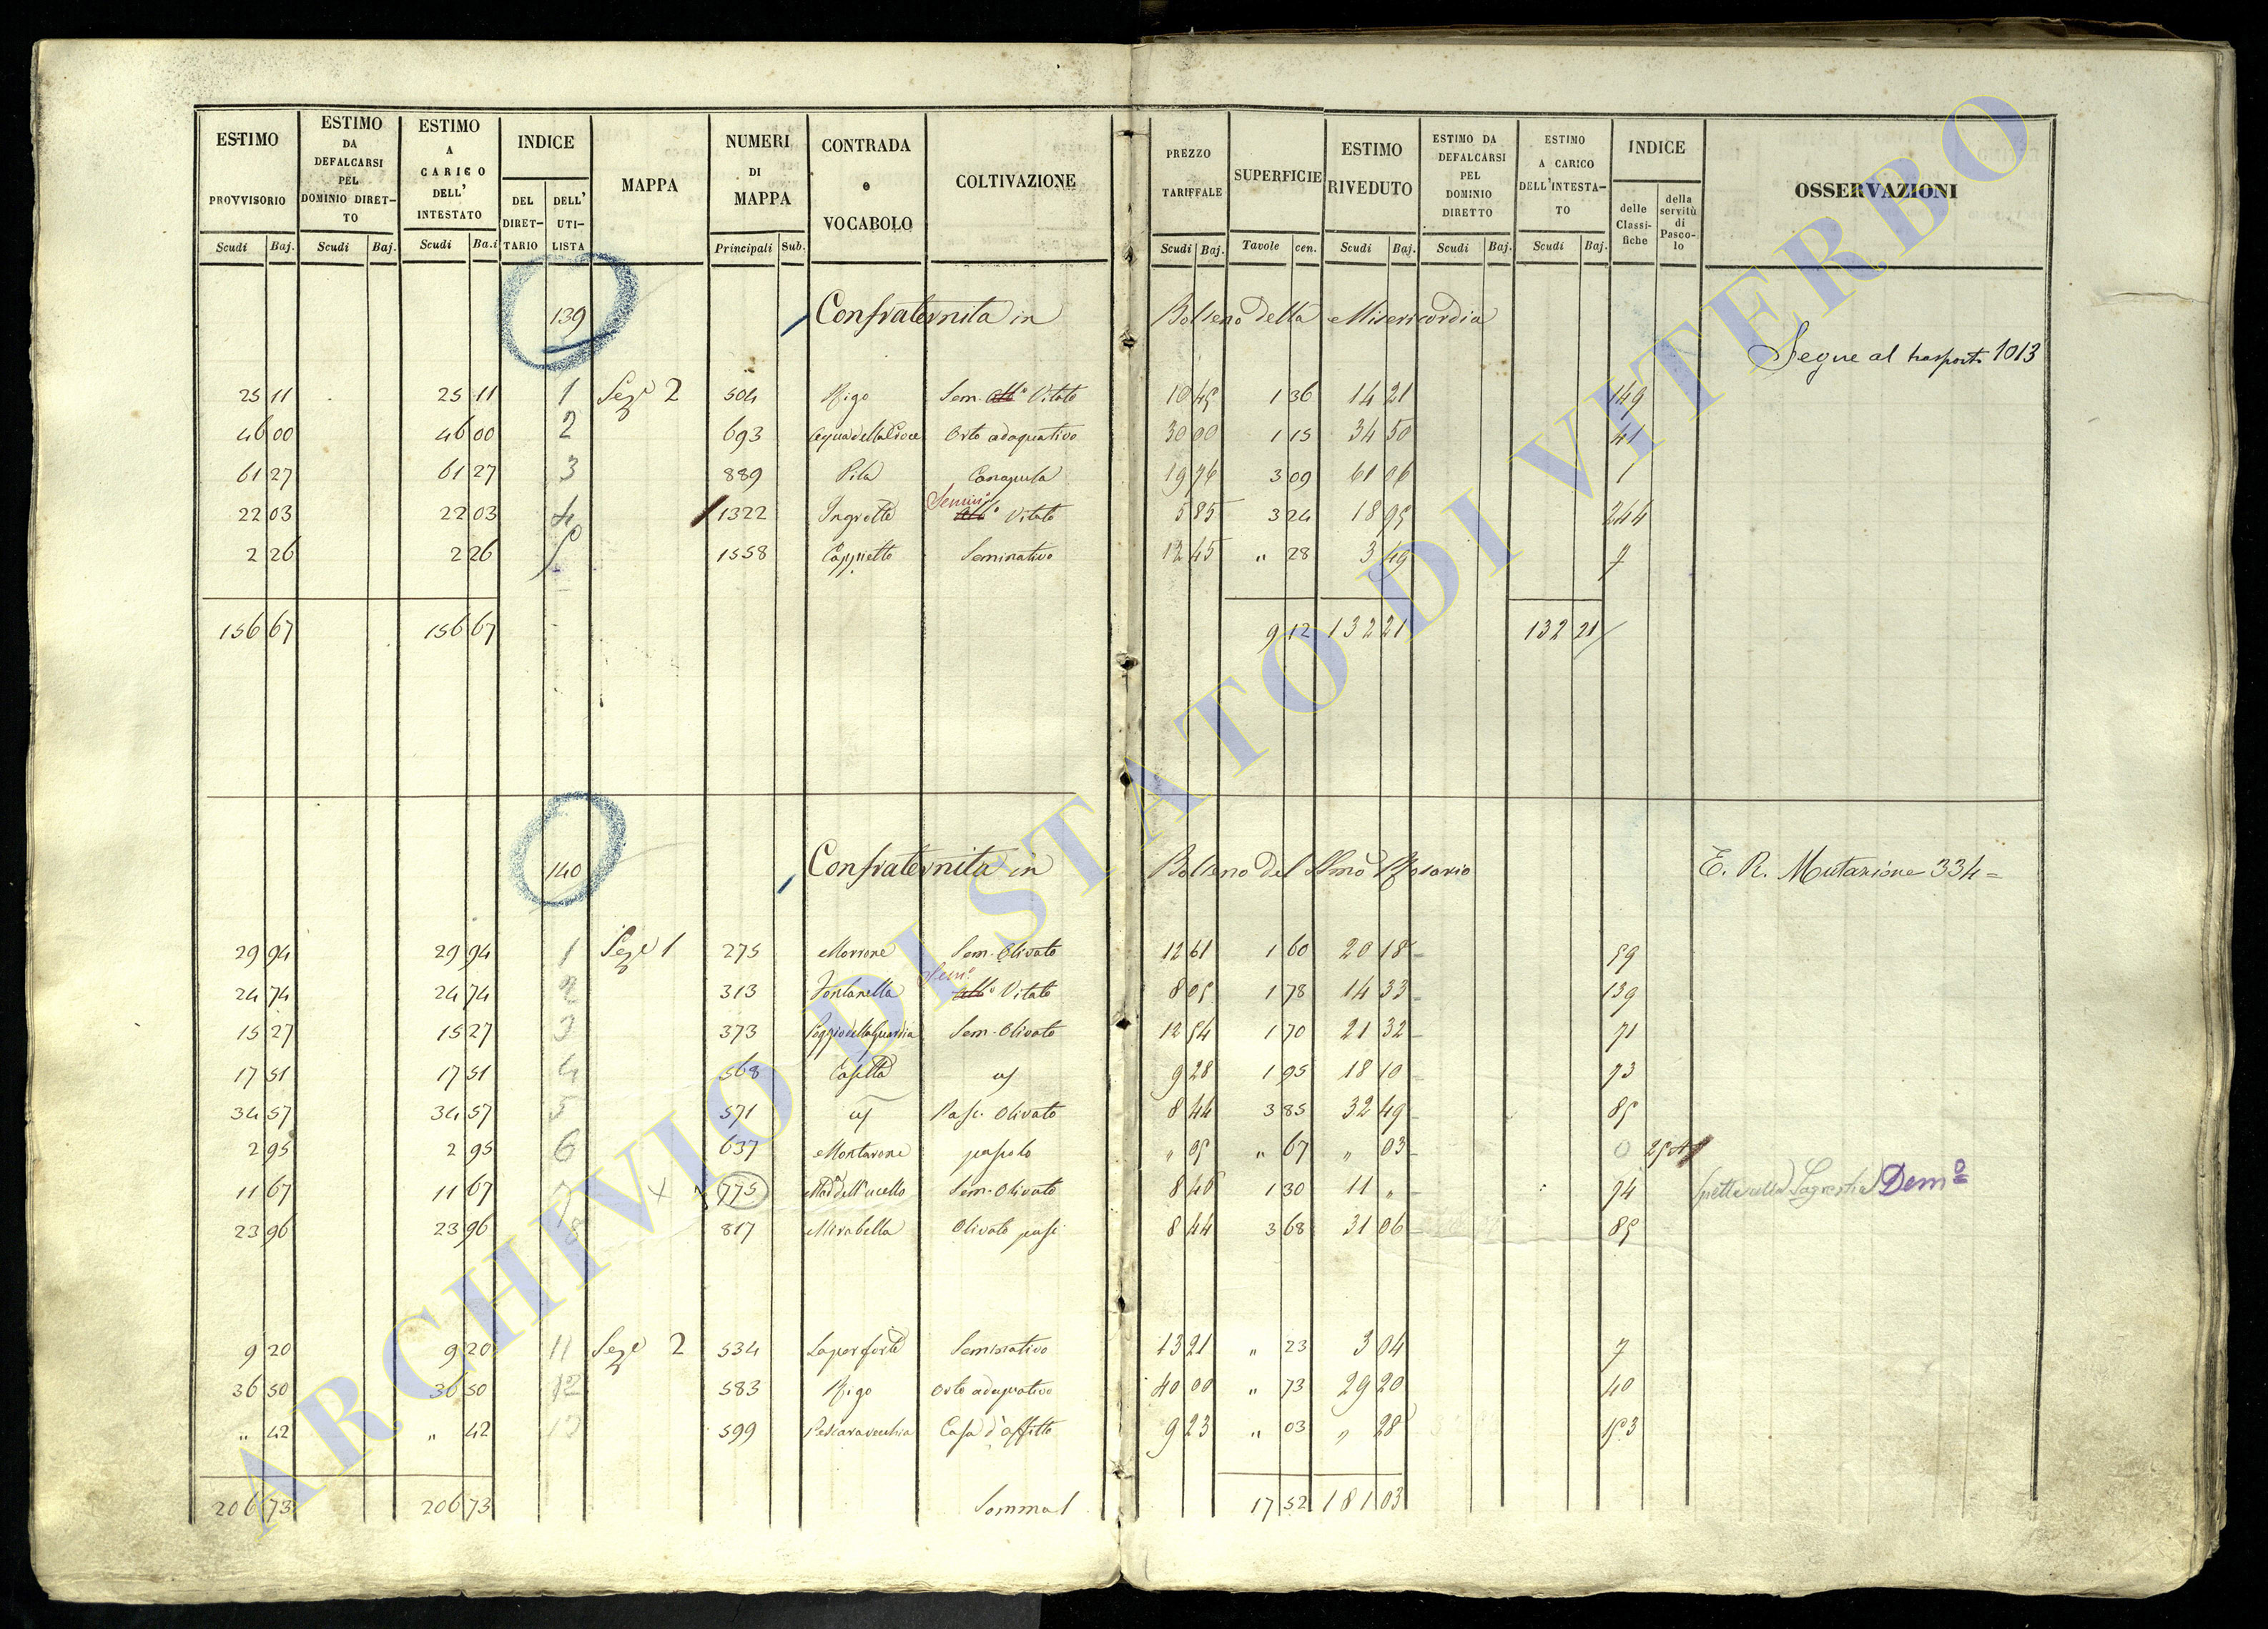 ESTIMO PROVVISORIO Scudi Baj.
ESTIMO DA DEFALCARSI PEL DOMINIO DIRET-TO Scudi Baj.
ESTIMO A CARICO DELL' INTESTATO Scudi Ba.i
INDICE DEL DIRET-TARIO DELL' UTI-LISTA
MAPPA
NUMERI DI MAPPA Principali Sub.
CONTRADA e VOCABOLO
COLTIVAZIONE
PREZZO TARIFFALE Scudi Baj.
SUPERFICIE Tavole cen.
ESTIMO RIVEDUTO Scudi Baj.
ESTIMO DA DEFALCARSI PEL DOMINIO DIRETTO Scudi Baj.
ESTIMO A CARICO DELL'INTESTA-TO Scudi Baj.
INDICE delle Classi-fiche della servitù di Pasco-lo
OSSERVAZIONI
139 Confraternita in Bolseno della Misericordia
Segue al trasporto 1013
25 11 25 11 1 Sez.e 2 504 Rigo Sem. Vitato 10 45 1 36 14 21 149
46 00 46 00 2 693 Acqua della Croce Orto adaquativo 30 00 1 15 34 50 41
61 27 61 27 3 889 Pila Canapula 19 76 3 09 61 06 1
22 03 22 03 4 1322 Ingrotte Semin.o Vitato 5 85 3 24 18 95 244
2 26 2 26 5 1558 Cappietto Seminativo 12 45 " 28 3 49 7
156 67 156 67 9 12 132 21 132 21
140 Confraternita in Bolseno del SSmo Rosario E. R. Mutazione 334=
29 94 29 94 1 Sez.e 1 275 Morrone Sem. Olivato 12 61 1 60 20 18 59
24 74 24 74 2 313 Fontanella Sem.o Vitato 8 05 1 78 14 33 139
15 27 15 27 3 373 Poggio della Guardia Sem. Olivato 12 54 1 70 21 32 71
17 51 17 51 4 568 Casetta 9 28 1 95 18 10 73
34 57 34 57 5 571 Pasc. Olivato 8 44 3 85 32 49 85
2 95 2 95 6 637 Montarone pascolo " 05 " 67 " 03 0
11 67 11 67 7 775 Sem. Olivato 8 46 1 30 11 " 74 spetta alla Sagrestia Dem.o
23 96 23 96 8 817 Mirabella Olivato pasc. 8 44 3 68 31 06 85
9 20 9 20 11 Sez.e 2 534 Seminativo 13 21 " 23 3 04 7
36 50 36 50 12 583 Rigo Orto adaquativo 40 00 " 73 29 20 40
" 42 " 42 13 599 Pescaravecchia Casa d'affitto 9 23 " 03 " 28 153
206 73 206 73 Somma 17 52 181 03
ARCHIVIO DI STATO DI VITERBO